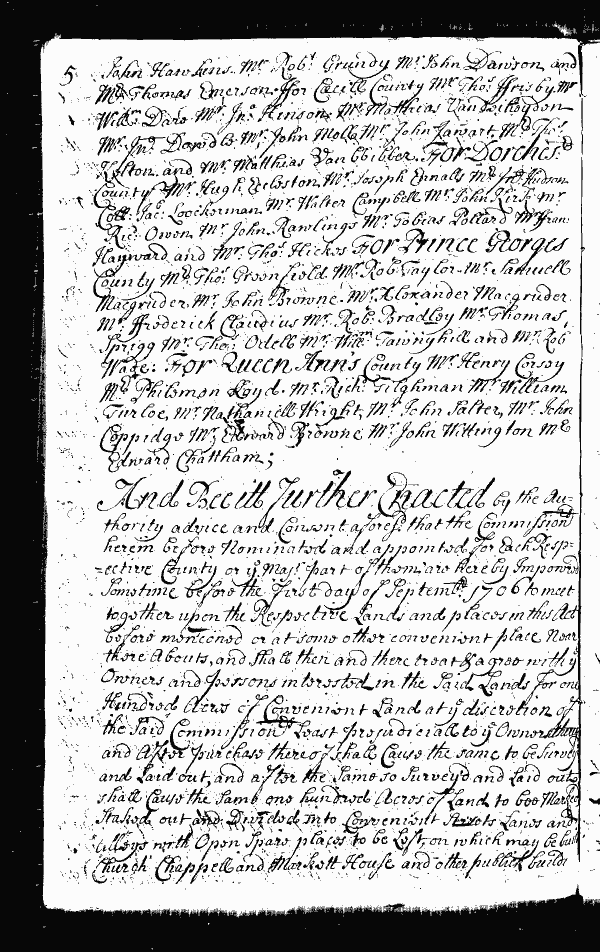 5
John Hawkins. Mr. Robt. Grundy Mr. John Dawson and
Mr. Thomas Emerson. ffor Cæcill County Mr. Thos. ffrisby Mr.
Willm. Dare Mr. Jno. Hinson Mr. Matthias Vanderheydon
Mr. Jno. Dowdle Mr. John Molle Mr. John Mr. Thos.
Kelton and Mr. Matthias Van Bibber. For Dorchestr.
County Mr. Hugh Ecleston Mr. Joseph Ennalls Mr. Jno. Hudson
Coll. Jac. Loockerman Mr. Walter Campbell Mr. John Kirk Mr.
Ric. Owen Mr. John Rawlings Mr. Tobias Pollard Mr. Fran:
Hayward and Mr. Tho. Hickes For Prince Georges
County Mr. Tho. Greenfield Mr. Rob. Taylor Mr. Samuell
Magruder Mr. John Browne Mr. Alexander Macgruder
Mr. ffrederick Claudius Mr. Rob. Bradley Mr. Thomas
Sprigg Mr. Tho. Odell Mr. Willm. Tawnyhill and Mr. Rob
Wade: For Queen Ann's County Mr. Henry Corsey
Mr. Philemon Lloyd. Mr. Rich. Tilghman Mr. William
Turloe, Mr. Nathaniell Wright, Mr. John Salter, Mr. John
Coppidge Mr. Edward Browne Mr. John Wittington Mr.
Edward Chattham;
And Bee itt Further Enacted by the Au-
thority advice and Consent aforesd. that the Commissionrs
herein before Nominated and appointed for each Resp-
=ective County or ye Majr. part of them are hereby Impowred
Sometime before the First day of Septembr. 1706 to meet
together upon the Respective Lands and places in this Act
before mencened or at some other convenient place Near
there Abouts, and shall then and there treat & agree with ye
Owners and persons interested in the Said Lands for one
Hundred Acres of Convenient Land at ye discretion of
the Said Commissionrs Least prejudiciall to ye Owners
and After purchase thereof shall Cause the same to be Survey
and Laid out, and after the Same so Surveyd and Laid out
shall Cause the Same one hundred Acres of Land to bee Marked
Staked out and Divided into Convenient Streets Lanes and
Alleys with Open Spare places to be Left, on which may be built
Church Chappell and Markett House and other publick buildi